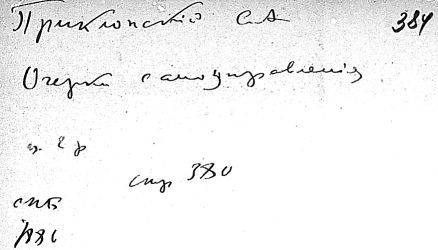 Приклонскій С.А 384
Очерки самоуправленія
ц. 2 р
стр 380
СПБ
1886